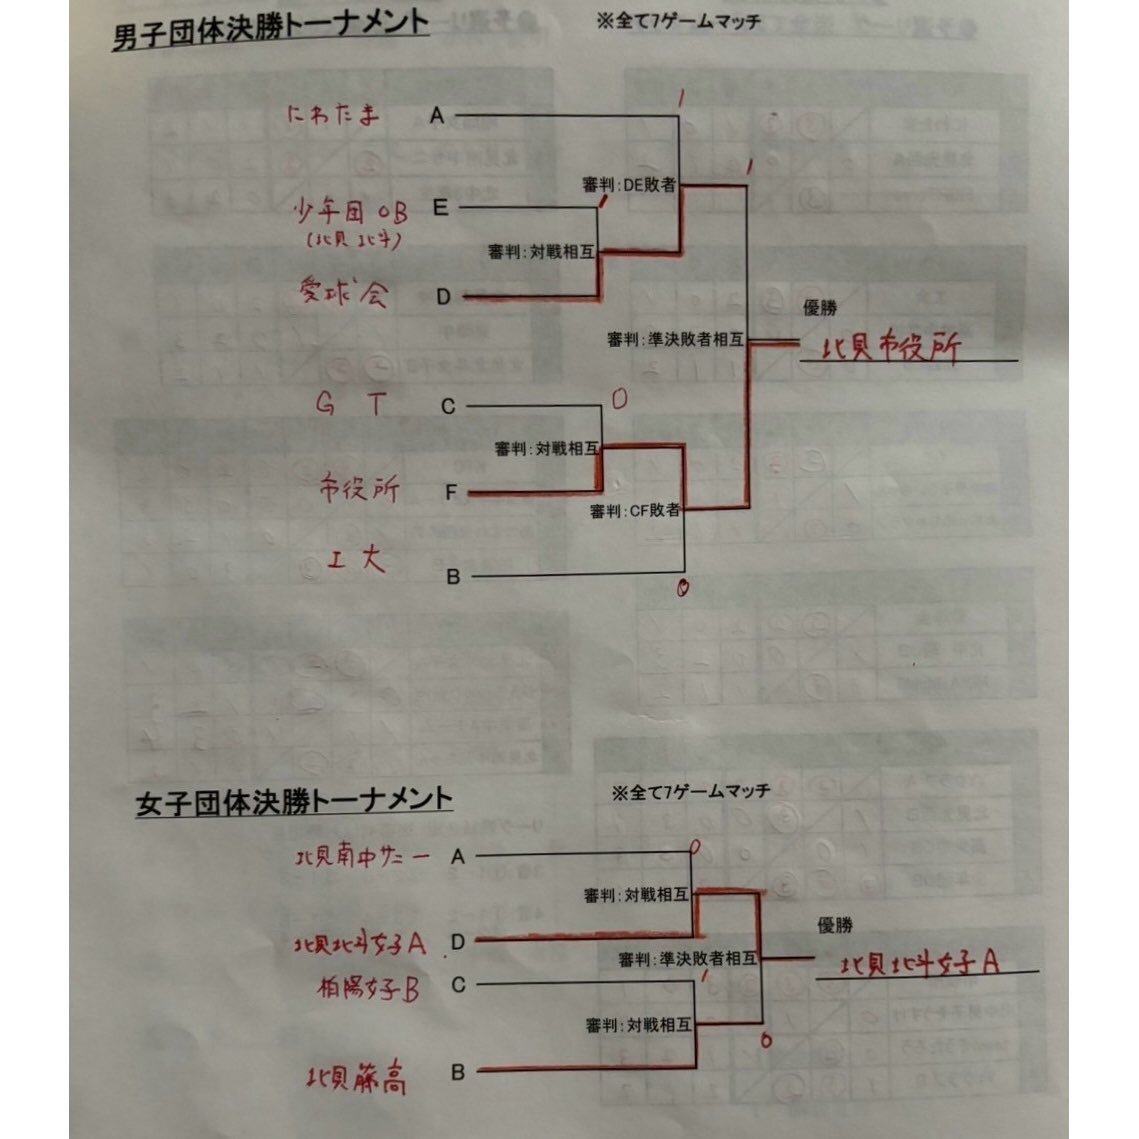 男子団体決勝トーナメント
※全て7ゲームマッチ
にわたま A 1
審判：DE敗者 1
少年団OB E 1
(北見北斗)
審判：対戦相互
愛球会 D
優勝
審判：準決敗者相互
北見市役所
GT C 0
審判：対戦相互
市役所 F
審判：CF敗者
工大 B
0
女子団体決勝トーナメント
※全て7ゲームマッチ
北見南中サニー A 0
審判：対戦相互
優勝
北見北斗女子A D
審判：準決敗者相互
北見北斗女子A
柏陽女子B C 1
審判：対戦相互
0
北見藤高 B